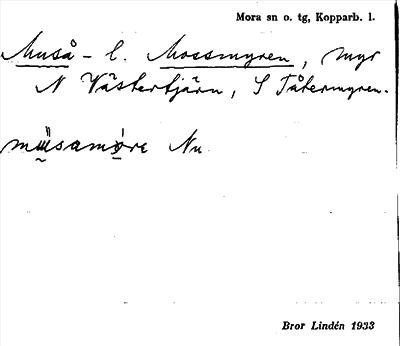 Mora sn o. tg, Kopparb. l.
Muså - l. Mossmyren, myr
N Västertjärn, S Tåkermyren.
müsamøre Nu.
Bror Lindén 1933